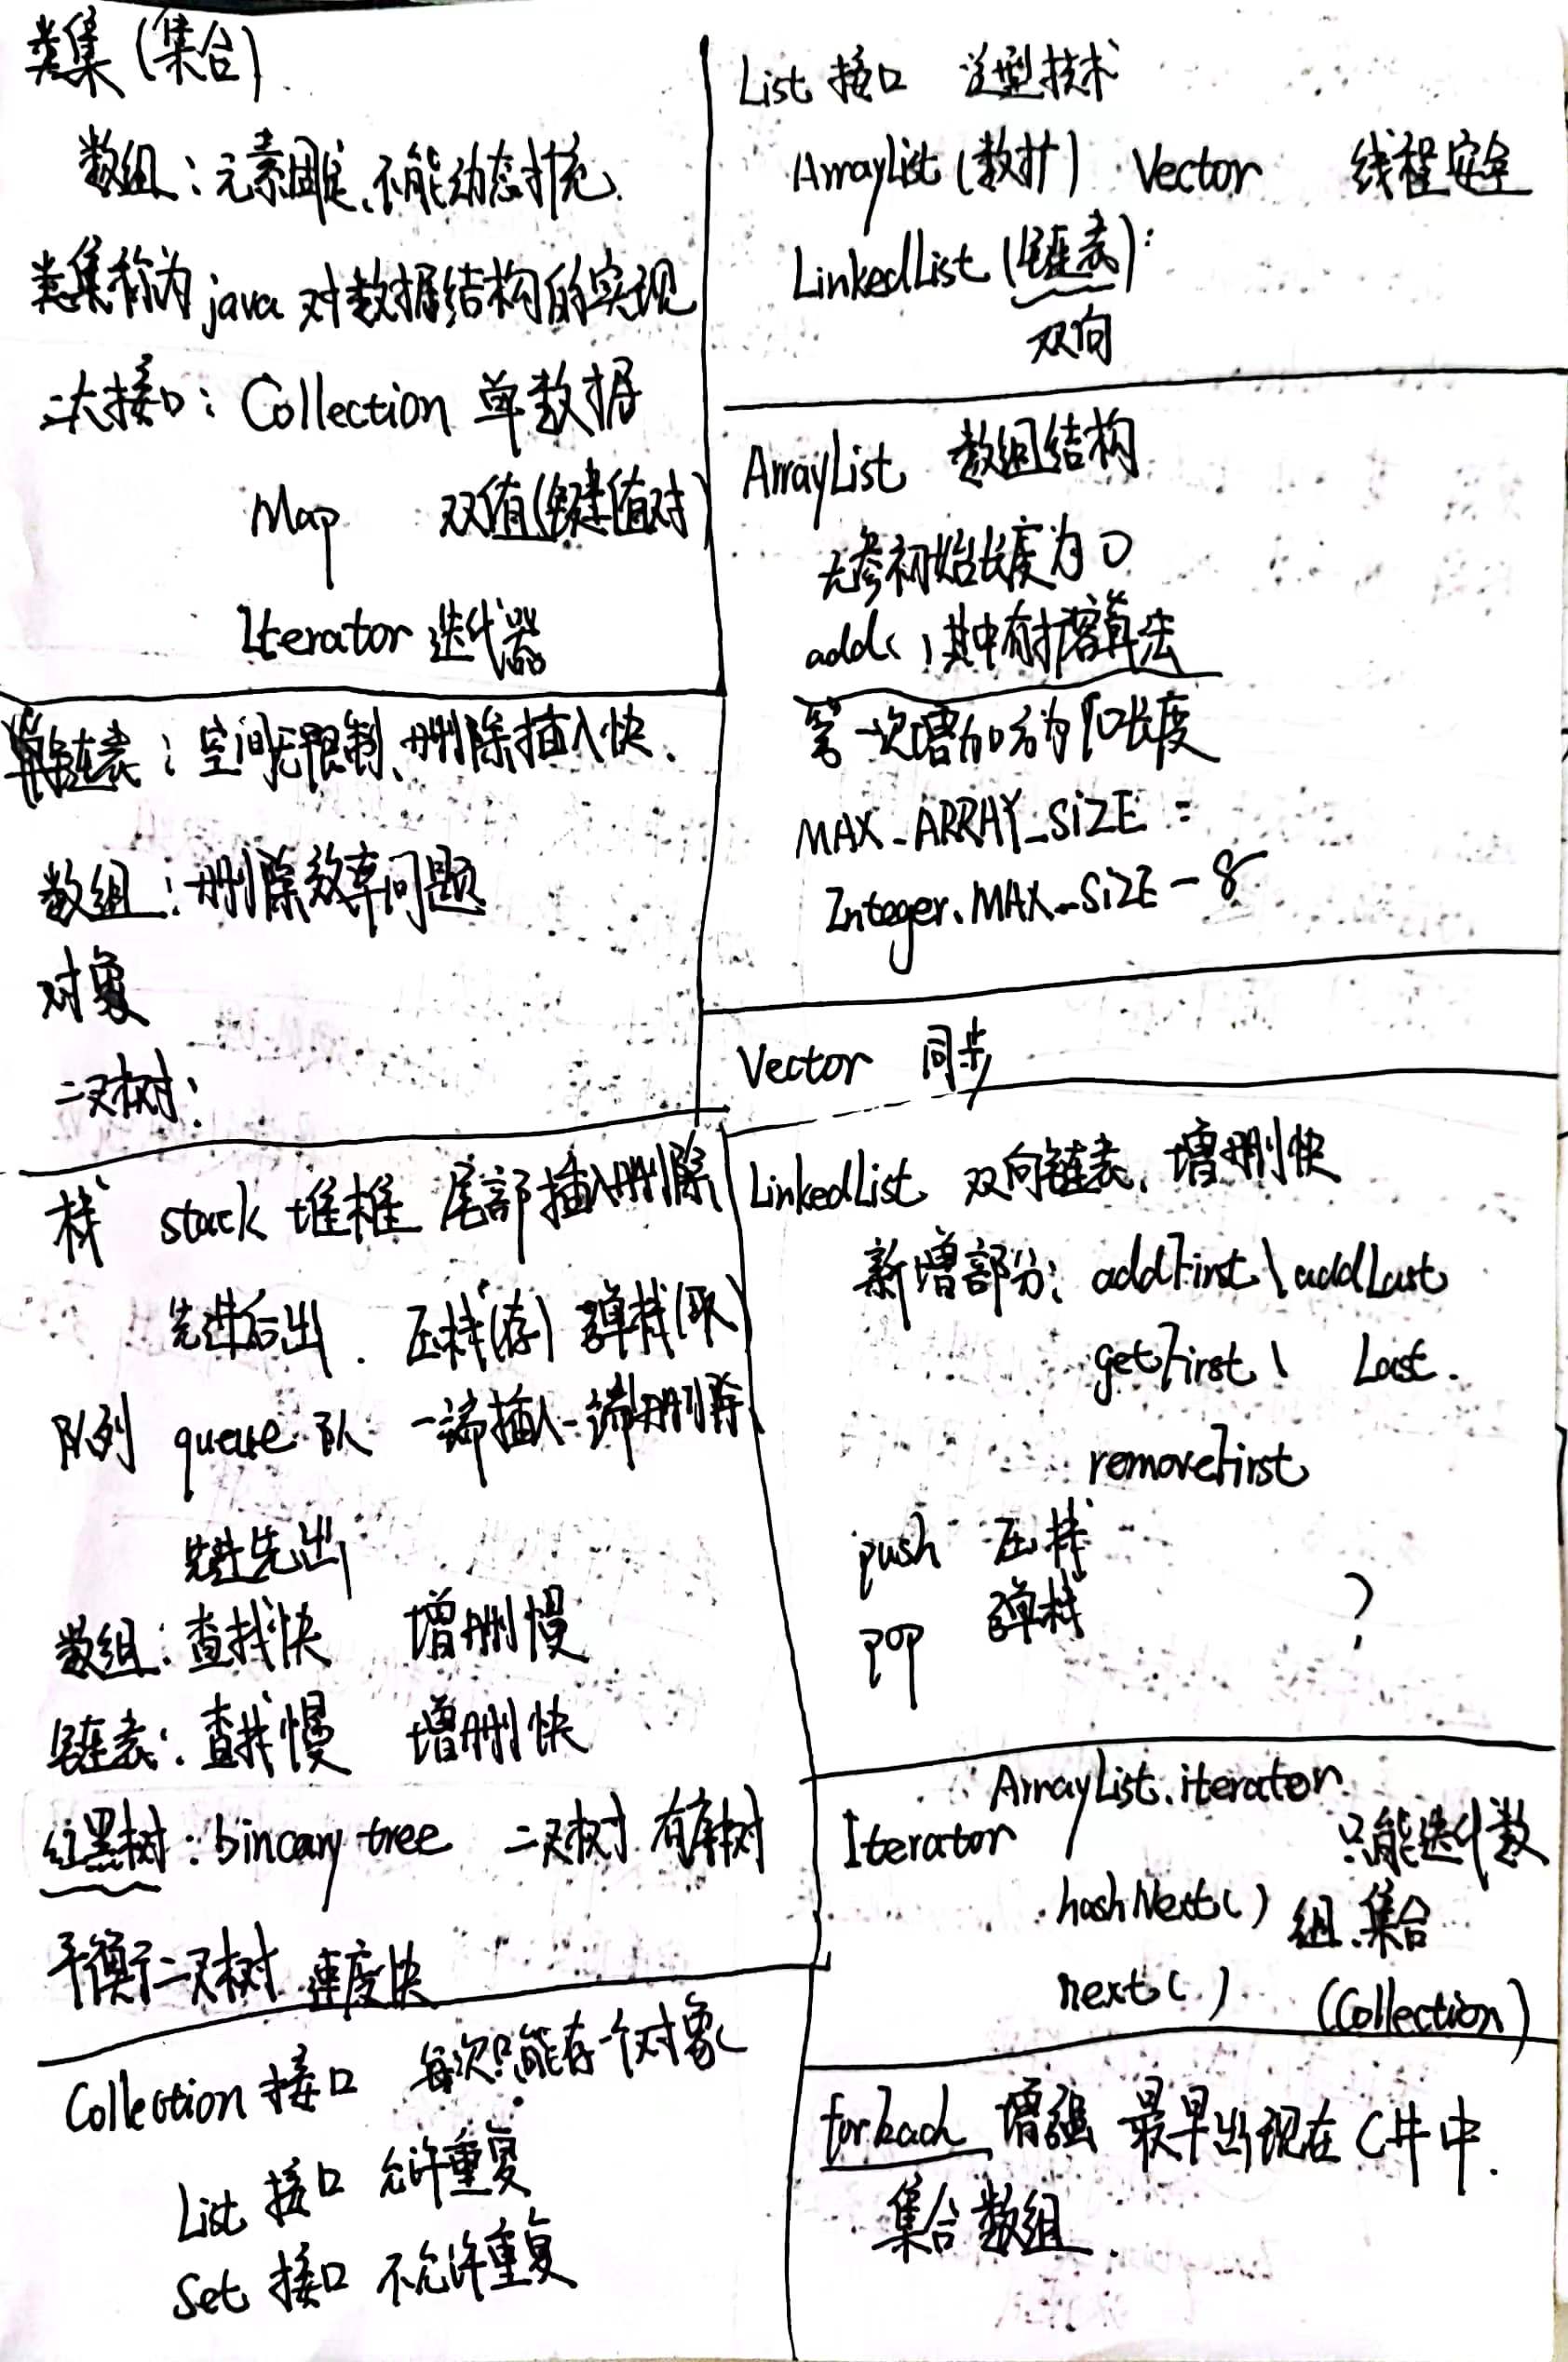 类集(集合)
数组：元素固定、不能动态扩充.
类集称为java对数据结构的实现
二大接口：Collection 单数据
Map 双值(键值对)
Iterator 迭代器
链表：空间无限制、删除插入快.
数组：删除效率问题
对象
二叉树：
栈 stack 堆栈 尾部插入删除
先进后出. 压栈(存) 弹栈(取)
队列 queue 队 一端插入一端删除
先进先出
数组：查找快 增删慢
链表：查找慢 增删快
红黑树：bincary tree 二叉树 有序树
平衡二叉树 速度快
Collection 接口 每次只能存一个对象
List 接口 允许重复
Set 接口 不允许重复
List 接口 泛型技术
ArrayList (数扩) Vector 线程安全
LinkedList (链表)：
双向
ArrayList 数组结构
无参初始长度为0
add() 其中有扩容算法
第一次增加后为10长度
MAX_ARRAY_SIZE =
Integer.MAX_SIZE-8
Vector 同步
LinkedList 双向链表、增删快
新增部分：addFirst\addLast
getFirst\ Last.
removeFirst
push 压栈
pop 弹栈 ?
ArrayList.iterator
Iterator 只能迭代数
hashNext() 组、集合
next() (Collection)
forEach 增强 最早出现在C#中.
集合 数组.